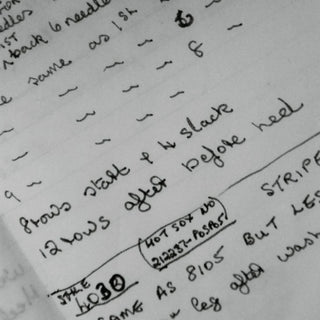 back 6 needle
same as 1st
~ ~ 6
~ ~ 8 ~
~ ~ ~
9 ~ ~
8 rows start & 4 slack
12 rows after before heel
STYLE
4030
HOT SOX NO
212237-POSP65
STRIPE
SAME AS 8105 BUT LES
leg after wash